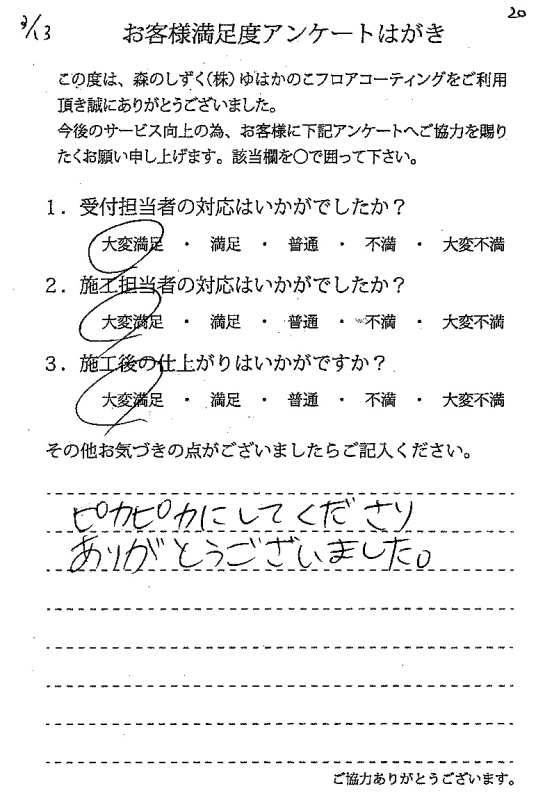 3/13
20
お客様満足度アンケートはがき
この度は、森のしずく(株)ゆはかのこフロアコーティングをご利用
頂き誠にありがとうございました。
今後のサービス向上の為、お客様に下記アンケートへご協力を賜り
たくお願い申し上げます。該当欄を〇で囲って下さい。
1．受付担当者の対応はいかがでしたか？
大変満足 ・ 満足 ・ 普通 ・ 不満 ・ 大変不満
2．施工担当者の対応はいかがでしたか？
大変満足 ・ 満足 ・ 普通 ・ 不満 ・ 大変不満
3．施工後の仕上がりはいかがですか？
大変満足 ・ 満足 ・ 普通 ・ 不満 ・ 大変不満
その他お気づきの点がございましたらご記入ください。
ピカピカにしてくださり
ありがとうございました。
ご協力ありがとうございます。